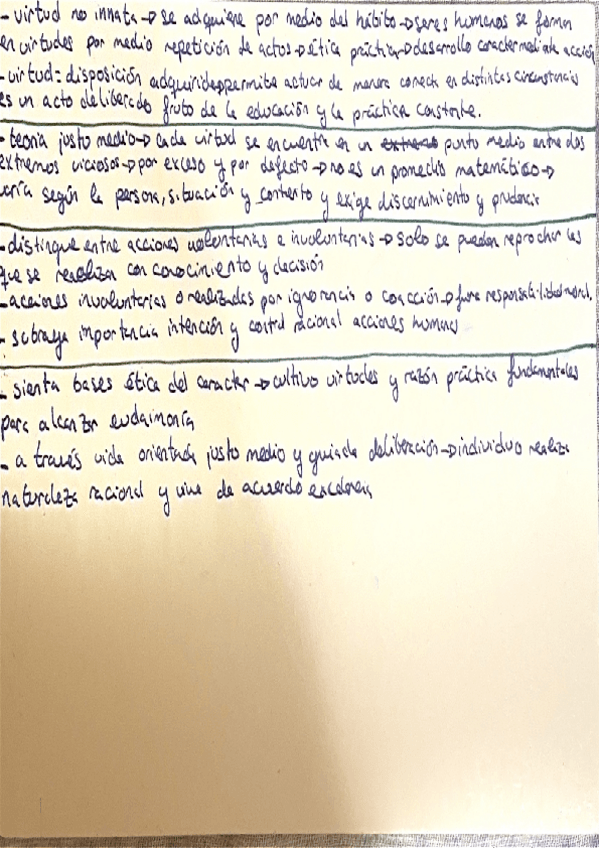 - virtud no innata → se adquiere por medio del hábito → seres humanos se forman
en virtudes por medio repetición de actos → ética práctica → desarrollo caracter mediante acción
- virtud = disposición adquirida → permite actuar de manera correcta en distintas circunstancias
es un acto deliberado fruto de la educación y la práctica constante.
- teoría justo medio → cada virtud se encuentra en un extremo punto medio entre dos
extremos viciosos → por exceso y por defecto → no es un promedio matemático →
varía según la persona, situación y contexto y exige discernimiento y prudencia
- distingue entre acciones voluntarias e involuntarias → solo se pueden reprochar las
que se realizan con conocimiento y decisión
- acciones involuntarias o realizadas por ignorancia o coacción → fuera responsabilidad moral.
- subraya importancia intención y control racional acciones humanas
- sienta bases ética del caracter → cultivo virtudes y razón práctica fundamentales
para alcanzar eudaimonía
- a través vida orientada justo medio y guiada deliberación → individuo realiza
naturaleza racional y vive de acuerdo excelencia